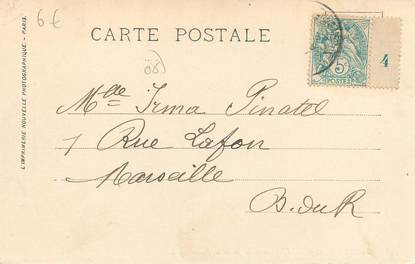 6€
CARTE POSTALE
(06)
4
5c
POSTES
Mlle Irma Pinatel
7 Rue Lafon
Marseille
B. du R
L'IMPRIMERIE NOUVELLE PHOTOGRAPHIQUE. - PARIS.